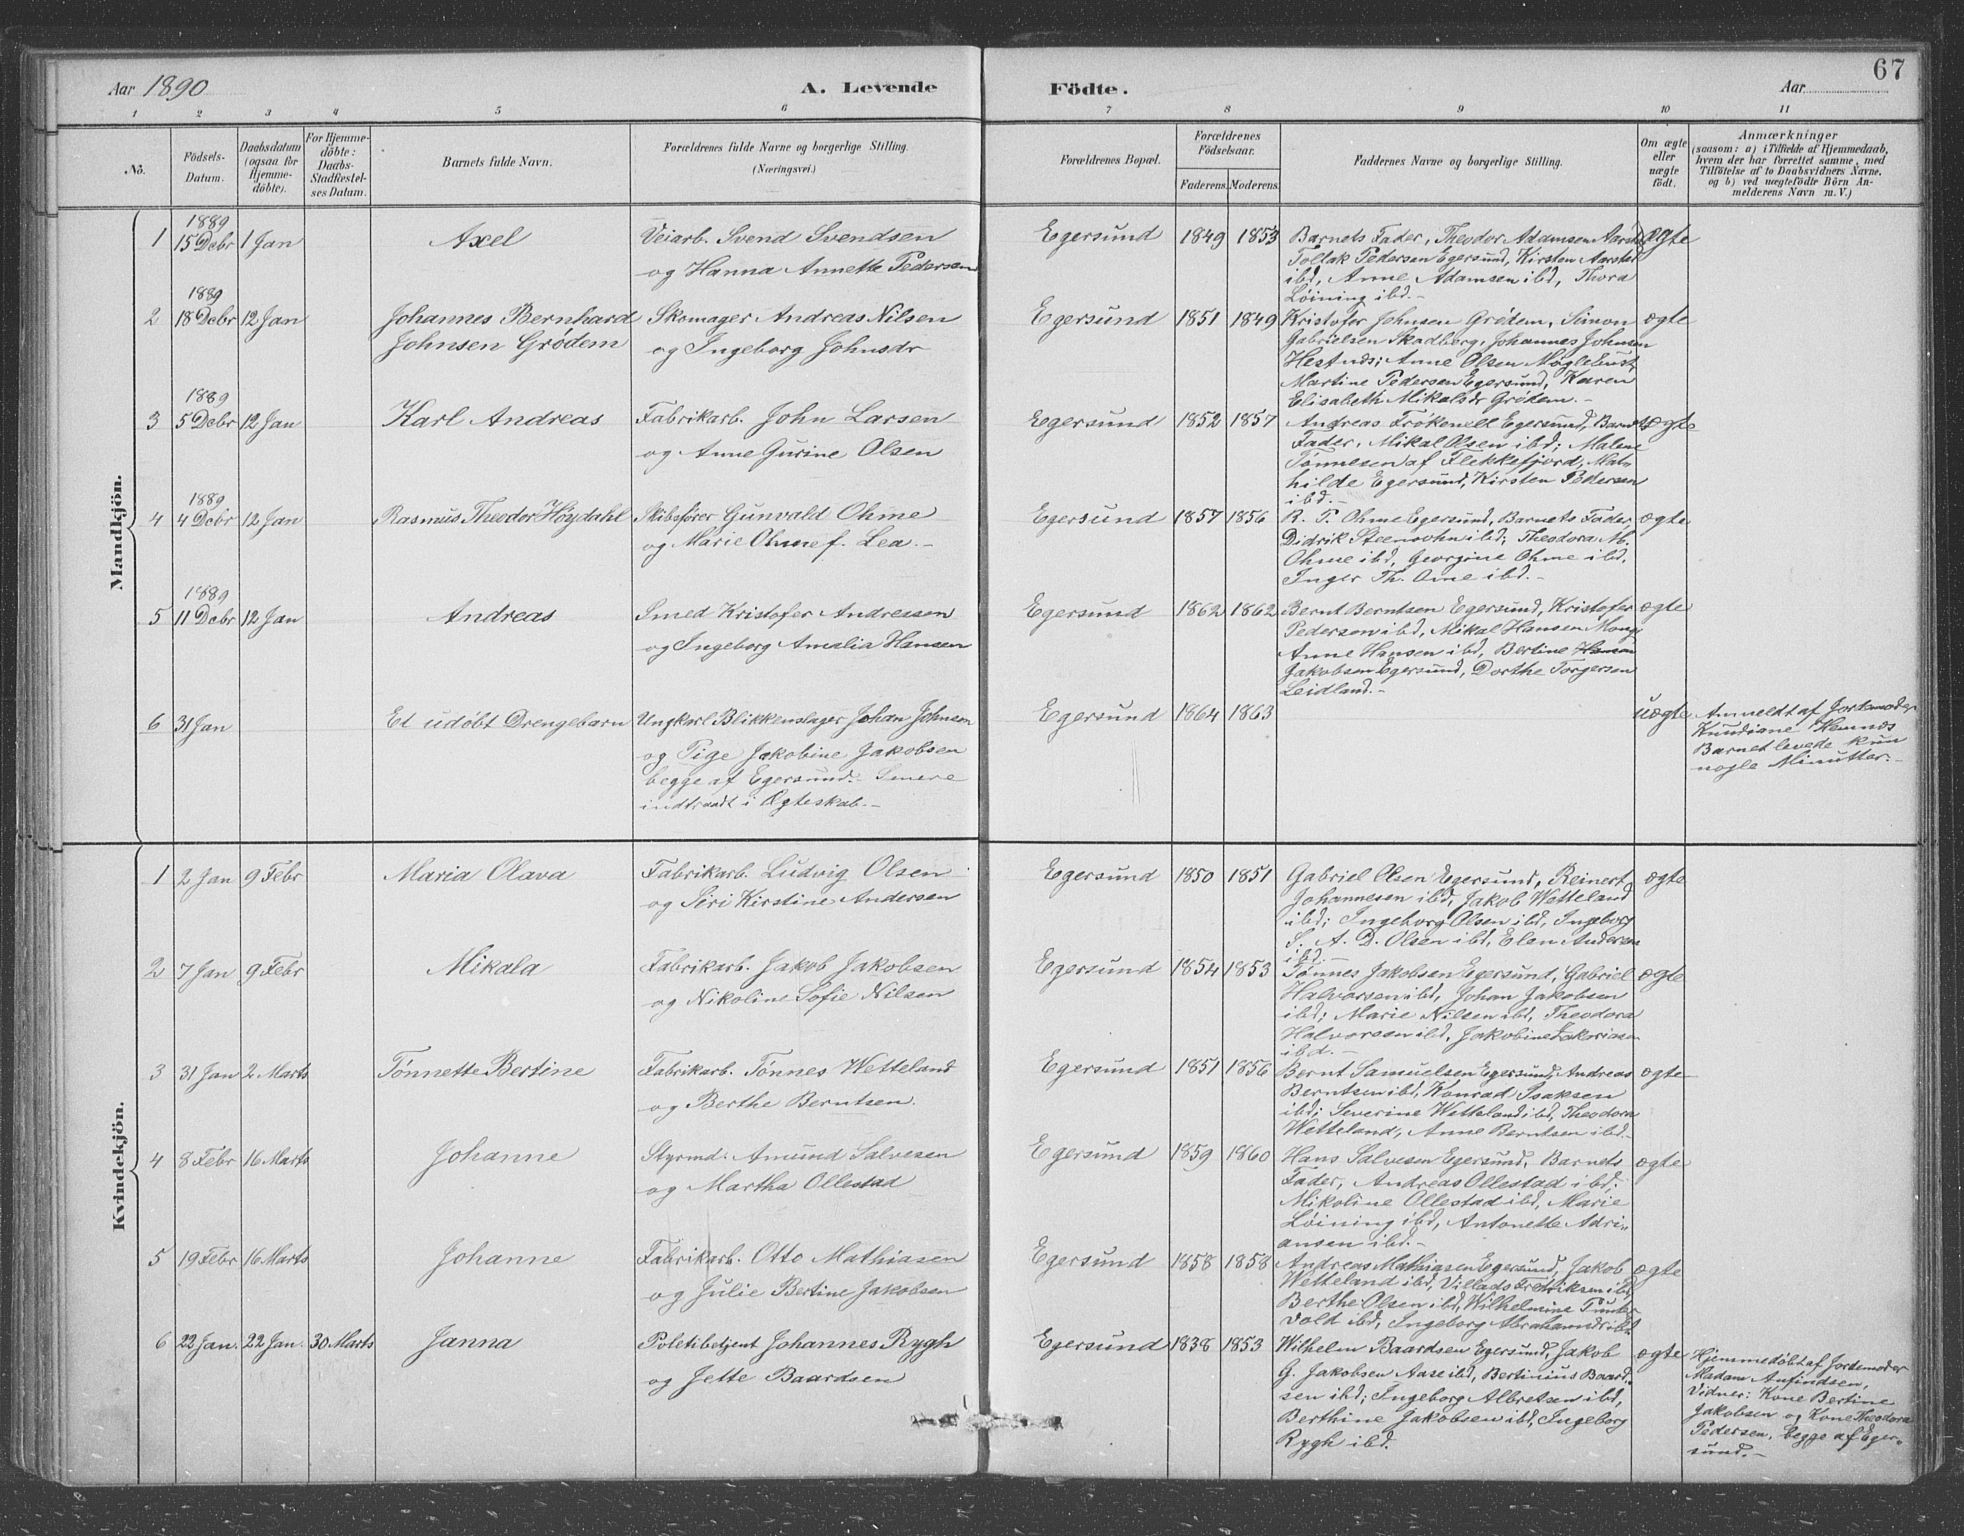 Aar 1890
A. Levende
Födte.
Aar
67
1 2 3 4 5 6 7 8 9 10 11
No.
Födsels-
Datum.
Daabsdatum
(ogsaa for
Hjemme-
döbte).
For Hjemme-
döbte:
Daabs-
Stadfæstel-
ses Datum.
Barnets fulde Navn.
Forældrenes fulde Navne og borgerlige Stilling.
(Næringsvei.)
Forældrenes Bopæl.
Forældrenes
Födselsaar.
Faderens.
Moderens.
Faddernes Navne og borgerlige Stilling.
Om ægte
eller
uægte
födt.
Anmærkninger
(saasom: a) i Tilfælde af Hjemmedaab,
hvem der har forrettet samme, med
Tilföielse af to Daabsvidners Navne,
og b) ved uægtefödte Börn An-
melderens Navn m. V.)
Mandkjön.
1889
1 15 Debr 1 Jan Axel Veiarb. Svend Svendsen Egersund 1849 1853 Barnets Fader, Theodor Adamsen Aarstad ægte
og Hanna Annette Pedersen Tollak Pedersen Egersund, Kirsten Aarstad
ibd, Anne Adamsen ibd, Thora
Løining ibd.-
1889
2 18 Debr 12 Jan Johannes Bernhard Skomager Andreas Nilsen Egersund 1851 1849 Kristofer Johnsen Grødem, Simon ægte
Johnsen Grødem og Ingeborg Johnsdr Gabrielsen Skadberg, Johannes Johnsen
Hestnes; Anne Olsen Møglebust,
Martine Pedersen Egersund, Karen
Elisabeth Mikalsdr Grødem.-
1889
3 5 Debr 12 Jan Karl Andreas Fabrikarb. John Larsen Egersund 1852 1857 Andreas Frøkenell Egersund, Barnets ægte
og Anne Gurine Olsen Fader, Mikal Olsen ibd; Malene
Tønnesen af Flekkefjord, Mat-
hilde Egersund, Kirsten Pedersen
ibd.-
1889
4 4 Debr 12 Jan Rasmus Theodor Høydahl Skibsfører Gunvald Ohme Egersund 1857 1856 R. T. Ohme Egersund, Barnets Fader, ægte
og Marie Ohme f. Lea.- Didrik Steensohn ibd; Theodora M.
Ohme ibd, Georgine Ohme ibd,
Inger Th. Ome ibd.-
1889
5 11 Debr 12 Jan Andreas Smed Kristofer Andressen Egersund 1862 1862 Bernt Berntsen Egersund, Kristofer ægte
og Ingeborg Amalia Hansen Pedersen ibd, Mikal Hansen Mong;
Anne Hansen ibd, Bertine Hansen
Jakobsen Egersund, Dorthe Torgersen
Leidland.-
6 31 Jan Et udøbt Drengebarn Ungkarl Blikkenslager Johan Johnsen Egersund 1864 1863 uægte Anmeldt af Jordemoder
og Pige Jakobine Jakobsen Knudiane Hemnæs
begge af Egersund.- Senere Barnet levede kun
indtraadt i Ægteskab.- nogle Minutter.-
Kvindekjön.
1 2 Jan 9 Febr Maria Olava Fabrikarb. Ludvig Olsen Egersund 1850 1851 Gabriel Olsen Egersund, Reinert ægte
og Siri Kirstine Andersen Johannesen ibd, Jakob Wetteland
ibd; Ingeborg Olsen ibd, Ingeborg
S. A. D. Olsen ibd, Elen Andersen
ibd.-
2 7 Jan 9 Febr Mikala Fabrikarb. Jakob Jakobsen Egersund 1854 1853 Tønnes Jakobsen Egersund, Gabriel ægte
og Nikoline Sofie Nilsen Halvorsen ibd, Johan Jakobsen
ibd; Marie Nilsen ibd, Theodora
Halvorsen ibd, Jakobine Zakariasen
ibd.-
3 31 Jan 2 Marts Tønnette Bertine Fabrikarb. Tønnes Wetteland Egersund 1851 1856 Bernt Samuelsen Egersund, Andreas ægte
og Berthe Berntsen. Berntsen ibd, Konrad Isaksen
ibd; Severine Wetteland ibd, Theodora
Wetteland, Anne Berntsen ibd.-
4 8 Febr 16 Marts Johanne Styrmd. Amund Salvesen Egersund 1859 1860 Hans Salvesen Egersund, Barnets ægte
og Martha Ollestad Fader, Andreas Ollestad ibd;
Mikoline Ollestad ibd, Marie
Løining ibd, Antonette Adri-
ansen ibd.-
5 19 Febr 16 Marts Johanne Fabrikarb. Otto Mathiasen Egersund 1858 1858 Andreas Mathiasen Egersund, Jakob ægte
og Julie Bertine Jakobsen Wetteland ibd, Villads Fredriksen ibd,
Berthe Olsen ibd, Wilhelmine
vold ibd, Ingeborg
6 22 Jan. 22 Jan. 30 Marts Janna Poletibetjent Johannes Rygh Egersund 1838 1853 Wilhelm Baardsen Egersund, Jakob ægte Hjemmedøbt af Jordemoder
og Jette Baardsen G. Jakobsen Aase ibd, Bertinius Baard- Madam Anfindsen,
sen ibd; Ingeborg Albretsen ibd, Vidner: Kone Bertine
Berthine Jakobsen ibd, Ingeborg Jakobsen og Kone Theodora
Rygh ibd. Pedersen, begge af Eger-
sund.-